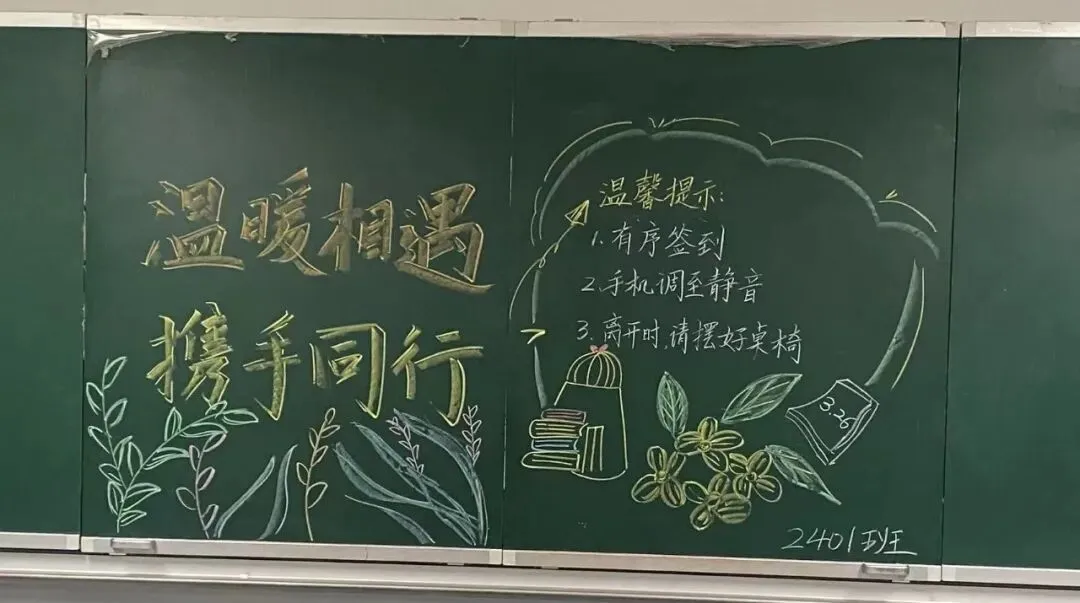 温暖相遇
携手同行
温馨提示:
1.有序签到
2.手机调至静音
3.离开时,请摆好桌椅
3.28
2401班